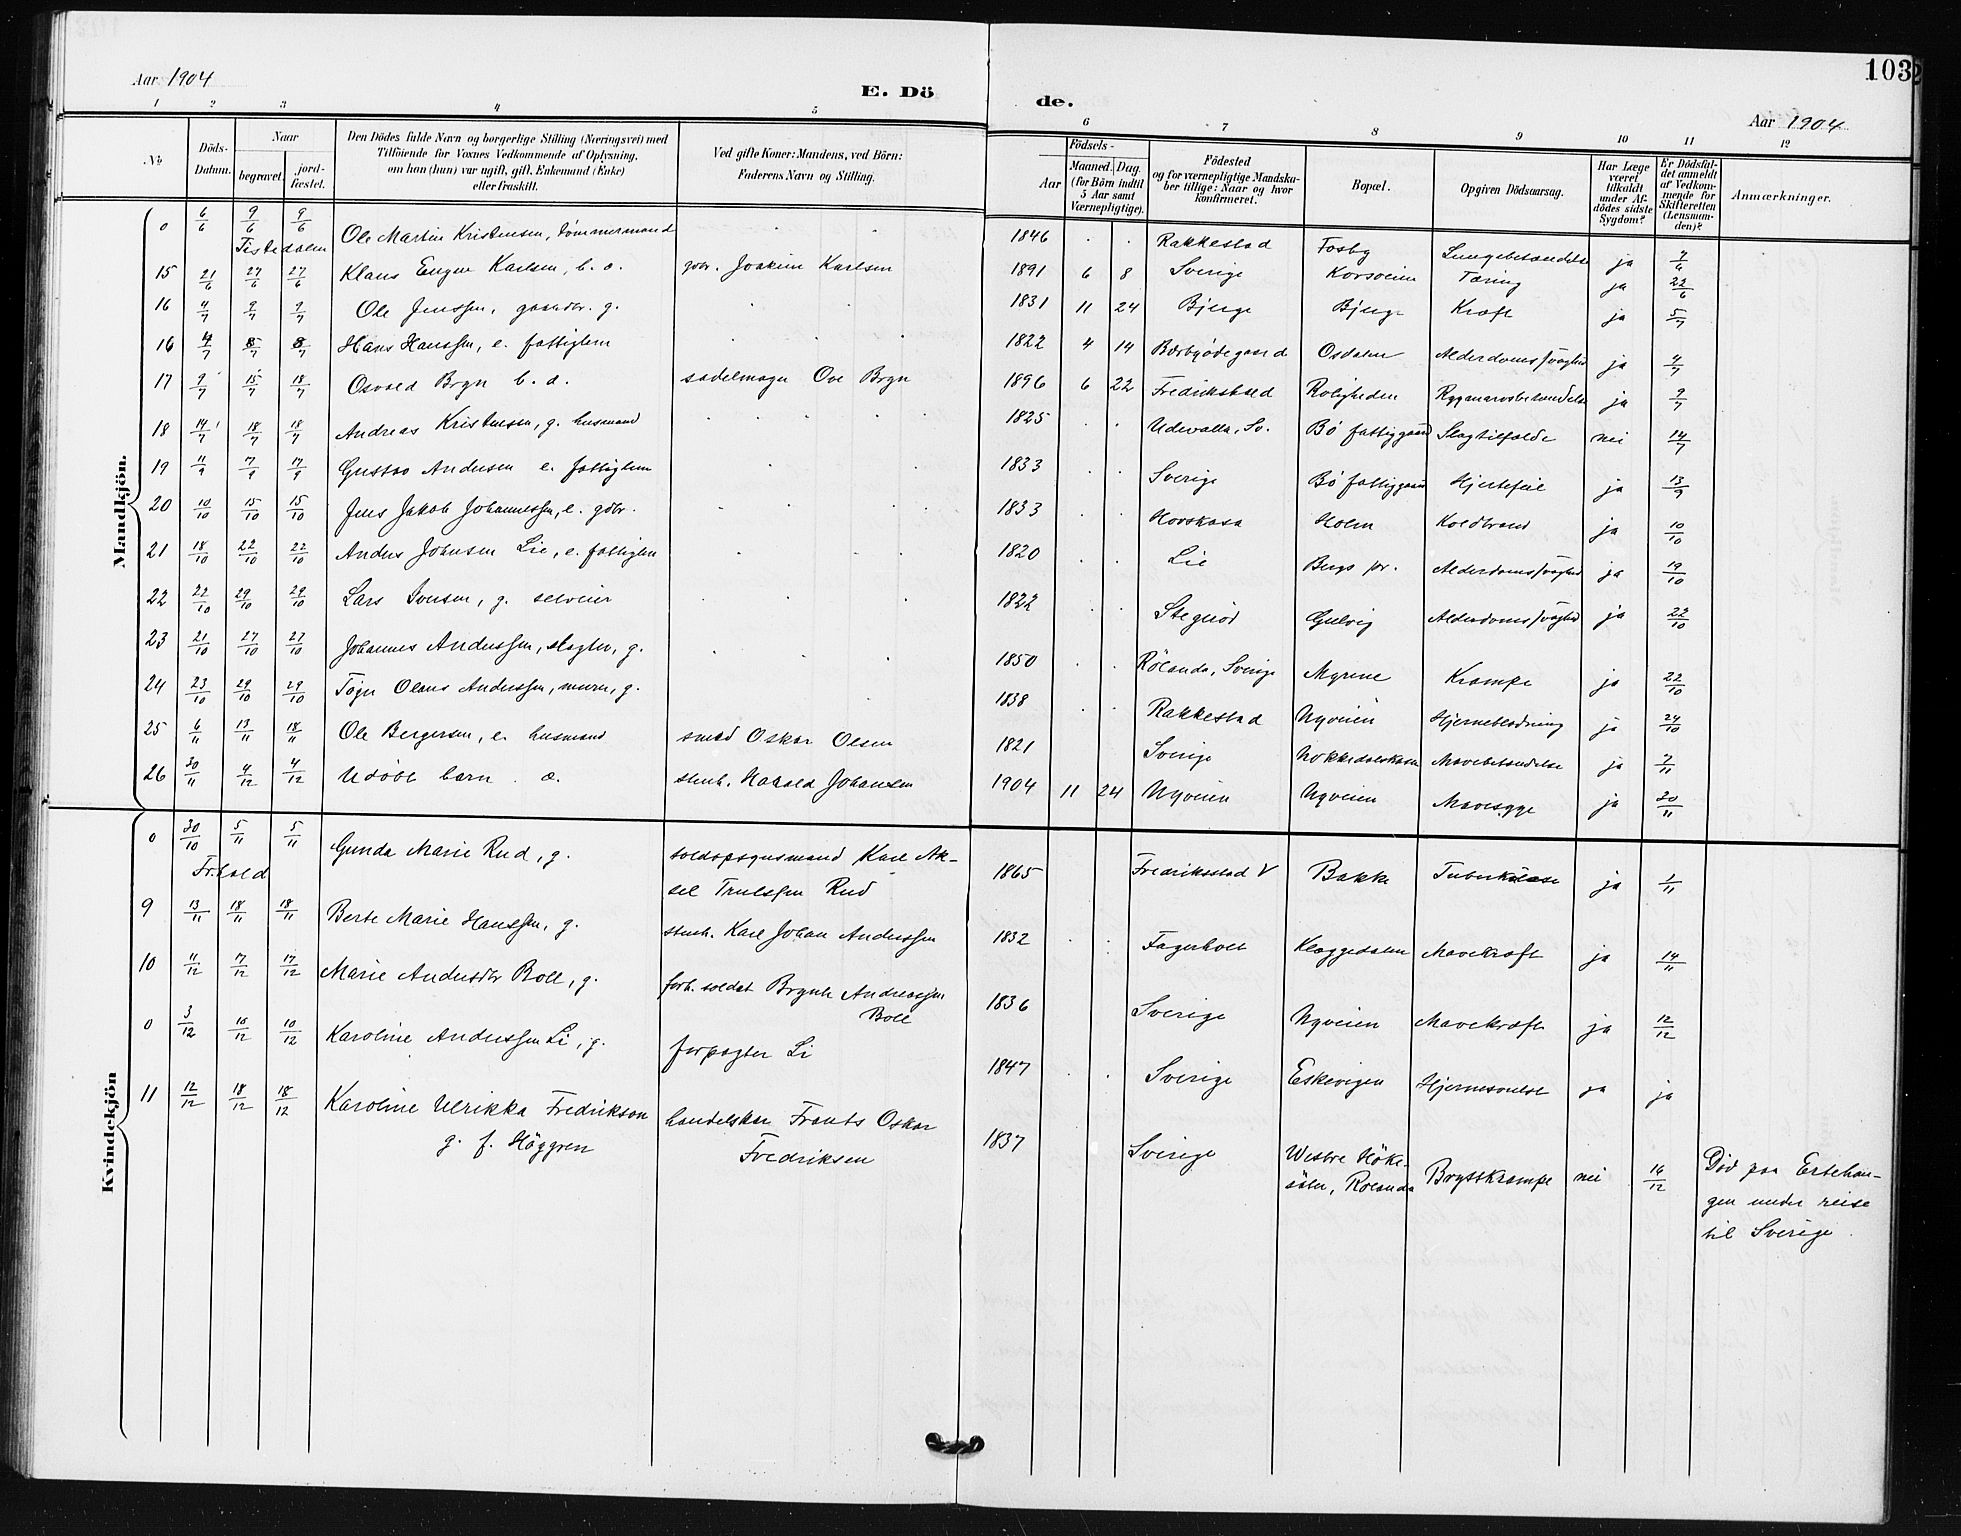 Aar 1904
E. Döde.
103
Aar 1904
1 2 3 4 5 6 7 8 9 10 11 12
No
Döds-Datum.
Naar
begravet.
jord-fæstet.
Den Dödes fulde Navn og borgerlige Stilling (Næringsvei) med
Tilföiende for Voxnes Vedkommende af Oplysning,
om han (hun) var ugift, gift, Enkemand (Enke)
eller fraskilt.
Ved gifte Koner: Mandens, ved Börn:
Faderens Navn og Stilling.
Födsels-
Aar
Maaned. Dag
(for Börn indtil
5 Aar samt
Værnepligtige).
Födested
og for værnepligtige Mandskaber tillige: Naar og hvor
konfirmeret.
Bopæl.
Opgiven Dödsaarsag.
Har Læge
været
tilkaldt
under Af-
dödes sidste
Sygdom?
Er Dödsfal-
det anmeldt
af Vedkom-
mende for
Skifteretten
(Lensman-
den)?
Anmærkninger.
Mandkjön.
0 6/6 9/6 9/6 Ole Martin Kristensen, tömmermand 1846 Rakkestad Fosby Lungebetændelse ja 7/6
Tistedalen
15 21/6 27/6 27/6 Klaus Eugen Karlsen, b. a. gbr. Joakim Karlsen 1891 6 8 Sverige Korsveien Tæring ja 22/6
16 4/7 9/7 9/7 Ole Jenssen, gaardbr. g. 1831 11 24 Bjerge Bjerge Kræft ja 5/7
16 4/7 8/7 8/7 Hans Hanssen, e. fattiglem 1822 4 14 Bærbyødegaard Osdalen Alderdomssvaghed ja 4/7
17 9/7 15/7 18/7 Osvald Bryn b. a. sadelmager Ove Bryn 1896 6 22 Fredrikshald Roligheden Rygmarvsbetændelse ja 9/7
18 14/7 18/7 18/7 Andreas Kristensen, g. husmand 1825 Udevalla, Sv. Bö fattiggaard Slagtilfælde nei 14/7
19 11/9 17/9 17/9 Gustav Andersen e. fattiglem 1833 Sverige Bö fattiggaard Hjertefeil ja 13/9
20 10/10 15/10 15/10 Jens Jakob Johannessen, e. gdbr. 1833 Holm Koldbrand ja 10/10
21 18/10 22/10 22/10 Anders Johnsen Lie, e. fattiglem 1820 Lie Bergs pr. Alderdomssvaghed ja 19/10
22 22/10 29/10 29/10 Lars Iversen, g. selveier 1822 Stegeröd Gulvig Alderdomssvaghed ja 22/10
23 21/10 27/10 27/10 Johannes Anderssen, slagter, g. 1850 Rölanda, Sverige Myrene Krampe ja 22/10
24 23/10 29/10 29/10 Olaus Anderssen, murer, g. 1838 Rakkestad Nyveien Hjerneblödning ja 24/10
25 6/11 13/11 18/11 Ole Bergersen, e. husmand smed Oskar Olsen 1821 Sverige Mavebetændelse ja 7/11
26 30/11 4/12 4/12 Udöbt barn. a. stenh. Harald Johansen 1904 11 24 Nyveien Nyveien Mavesyge ja 30/11
Kvindekjön
0 30/10 5/11 5/11 Gunda Marie Rud, g. soldapgusmand Karl Ak-
Fr.hald
sel Trulssen Rud 1865 Fredriksstad V Bakke Tuberkulose ja 1/11
9 13/11 18/11 18/11 Berte Marie Hanssen, g. stenh. Karl Johan Anderssen 1832 Fagerholt Klæggedalen Mavekræft ja 14/11
10 11/12 17/12 17/12 Marie Andersdtr Boll, g. forh. soldat Brynte Andreassen
Boll 1836 Sverige Nyveien Mavekræft ja 12/12
0 3/12 10/12 10/12 Karoline Anderssen Li, g. forpagter Li 1847 Sverige Eskevigen Hjernesvulst ja ja
11 12/12 18/12 18/12 Karoline Ulrikka Fredrikson
g. f. Höggren
handelskar Frants Oskar
Fredriksen
1837 Sverige Westre Höke-
säter, Rölanda
Brystkrampe nei 14/12
Död paa Ertehau-
gen under reise
til Sverige.